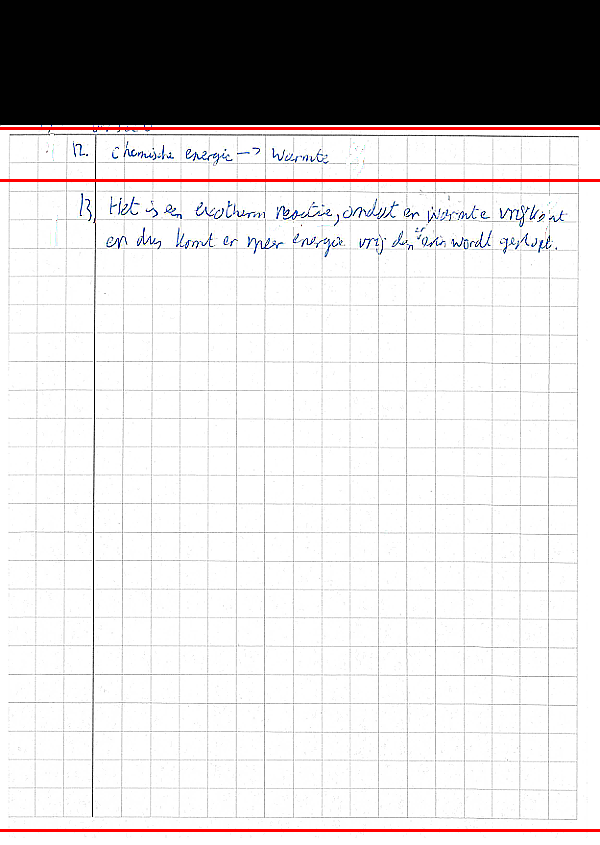 12. Chemische energie —> Warmte
13, Het is een exotherm reactie, omdat er warmte vrijkomt
en dus komt er meer energie vrij dan er in wordt gestopt.